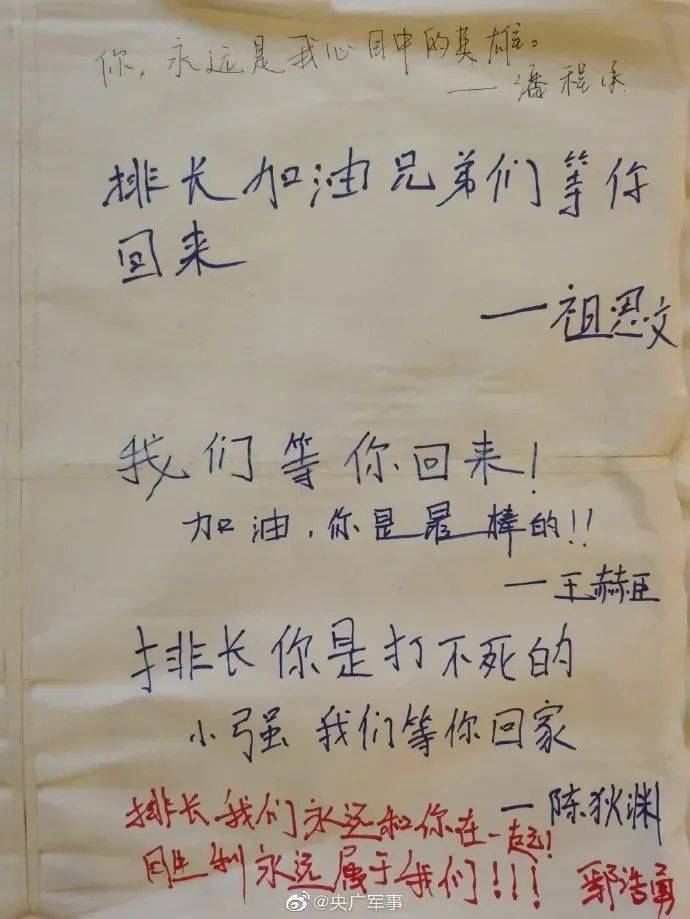 你，永远是我心目中的英雄。
—潘程
排长加油兄弟们等你
回来
—祖恩文
我们等你回来！
加油，你是最棒的！！
—王赫臣
排长你是打不死的
小强 我们等你回家
—陈狄渊
排长我们永远和你在一起！
胜利永远属于我们！！！
鄢浩勇
@央广军事